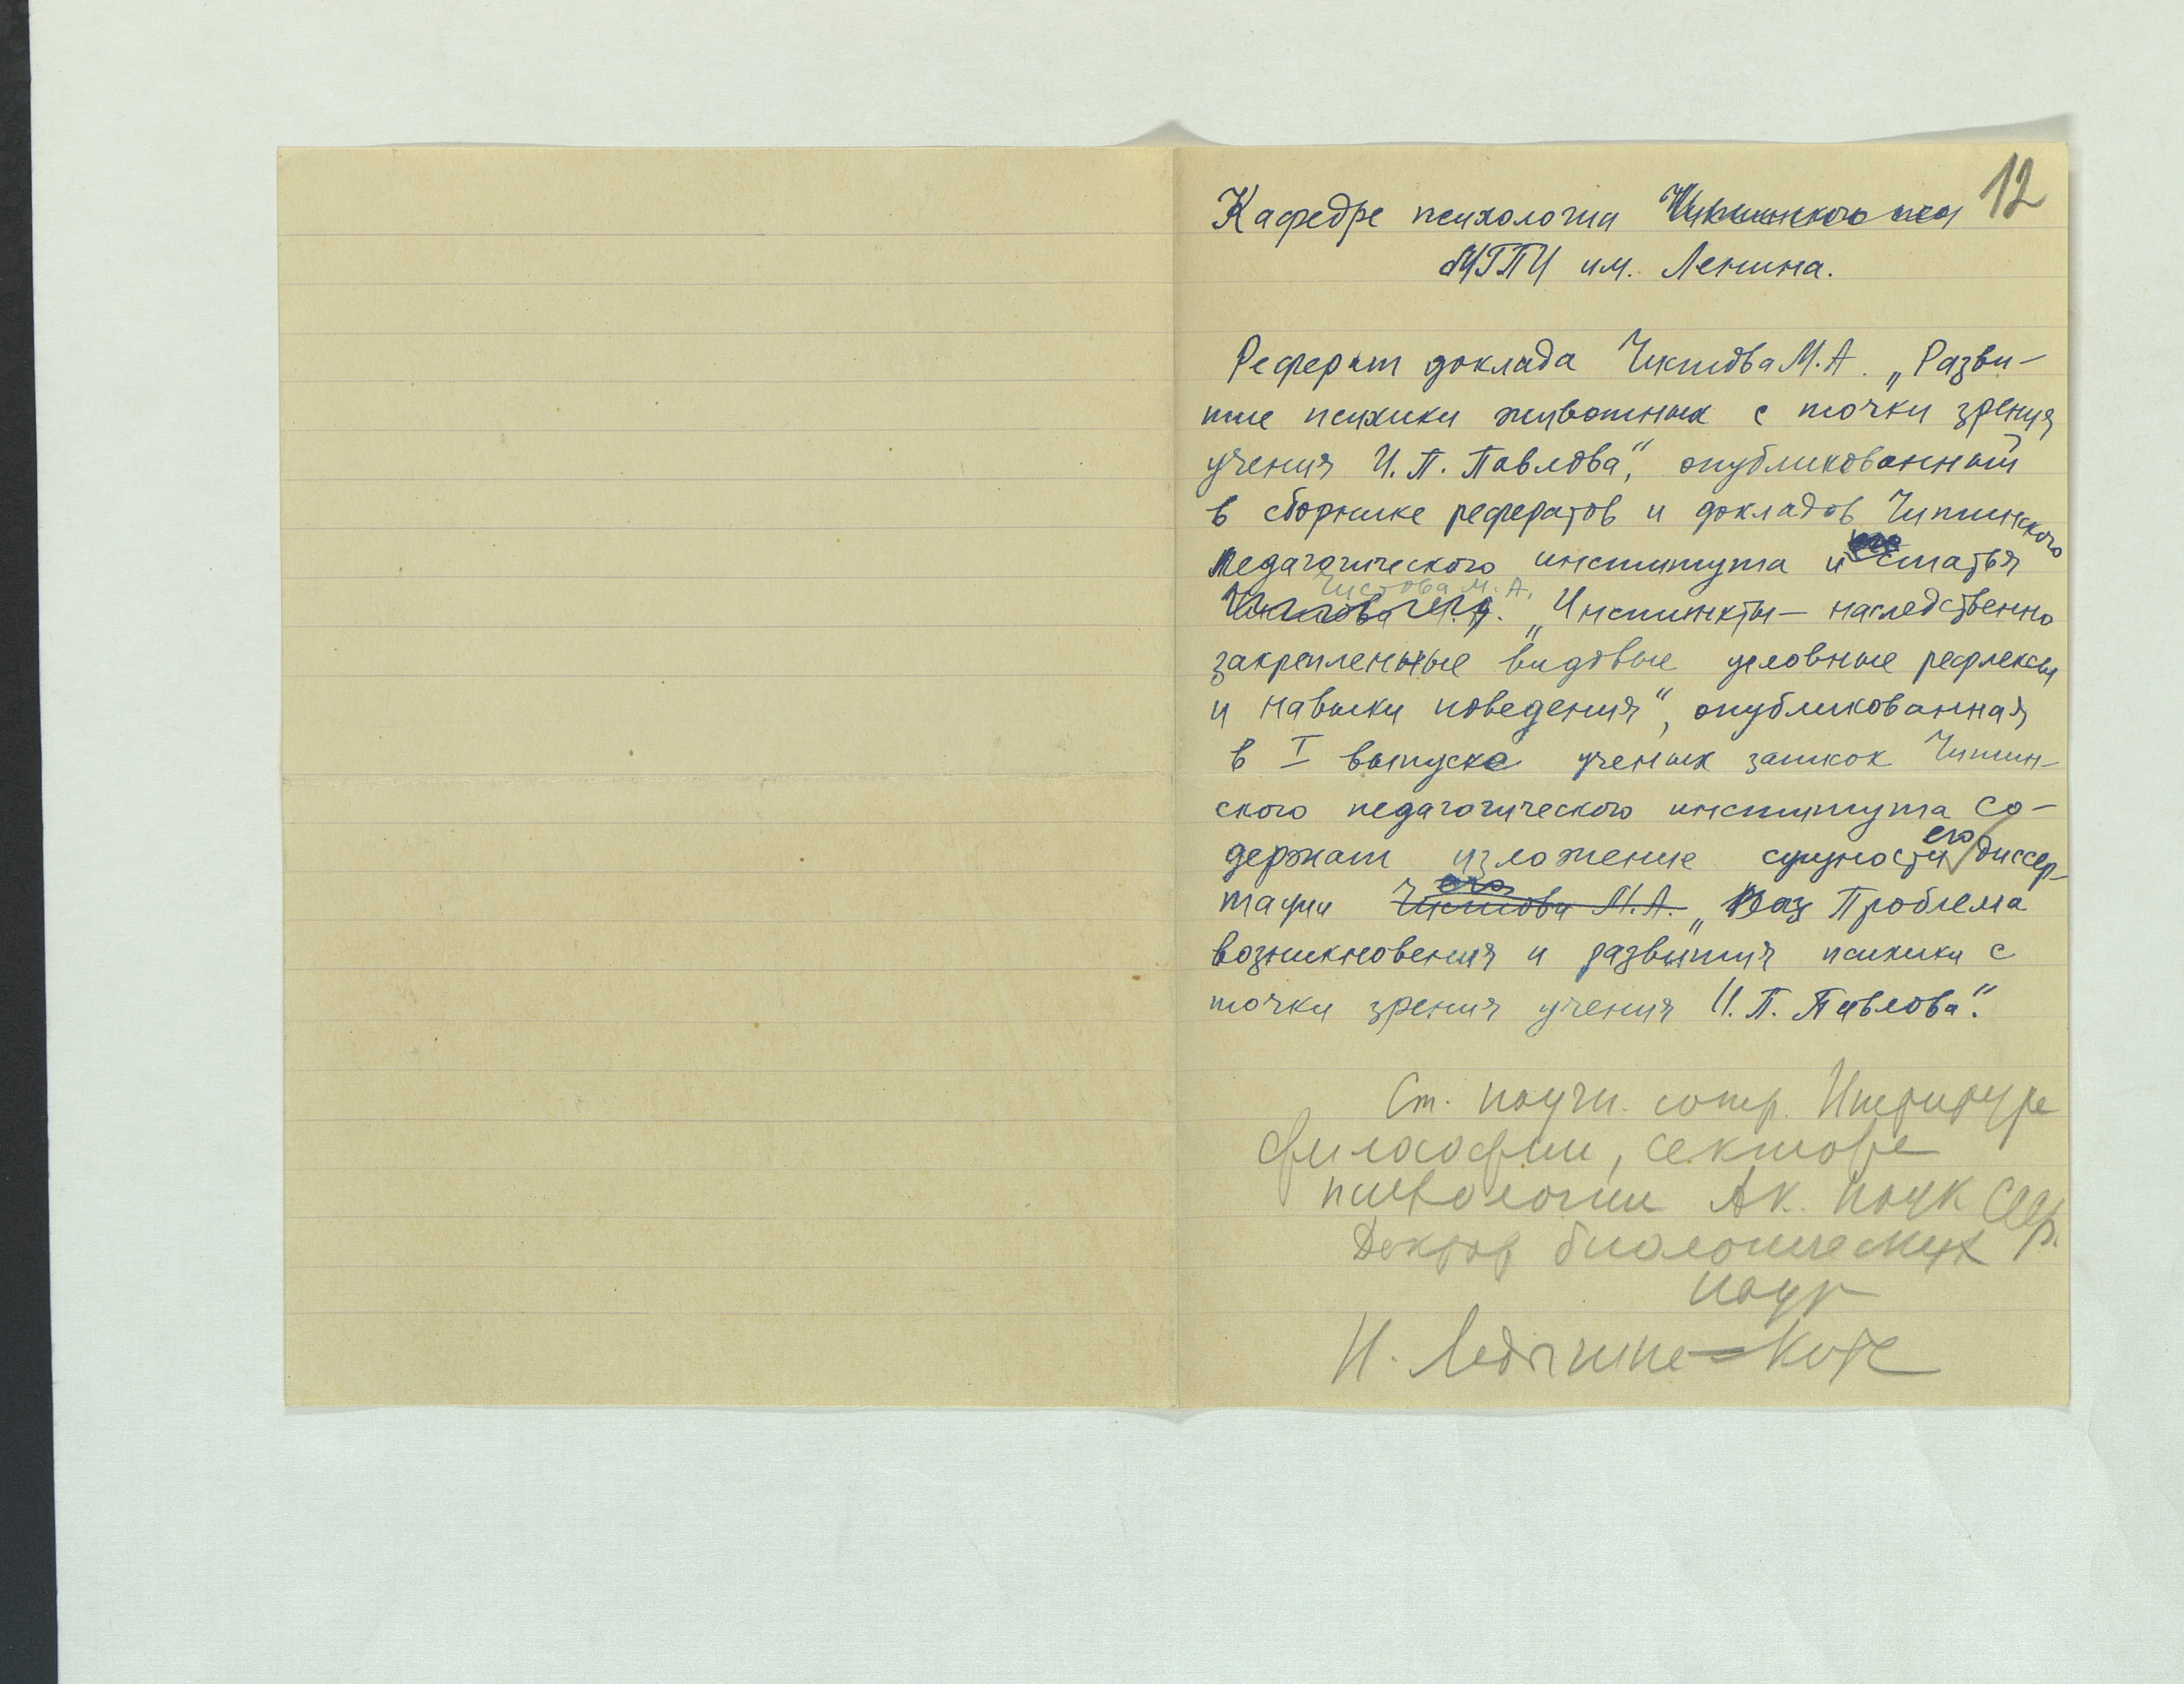 12
Кафедре психологии Читинского пед
МГПИ им. Ленина.
Реферат доклада Чистова М.А. „Разви-
тие психики животных с точки зрения
учения И.П. Павлова“, опубликованный
в сборнике рефератов и докладов Читинского
педагогического института и его статья
Чистова М.А.
Чистова М.А. „Инстинкты — наследственно
закрепленные видовые условные рефлексы
и навыки поведения“, опубликованная
в I выпуске ученых записок Читин-
ского педагогического института со-
держат изложение сущности его диссер-
тации Чистова М.А. его „Раз Проблема
возникновения и развития психики с
точки зрения учения И.П. Павлова“.
Ст. научн. сотр. Института
философии, сектора
психологии Ак. Наук СССР.
Доктор биологических
наук
Н. Ладыгина-Котс